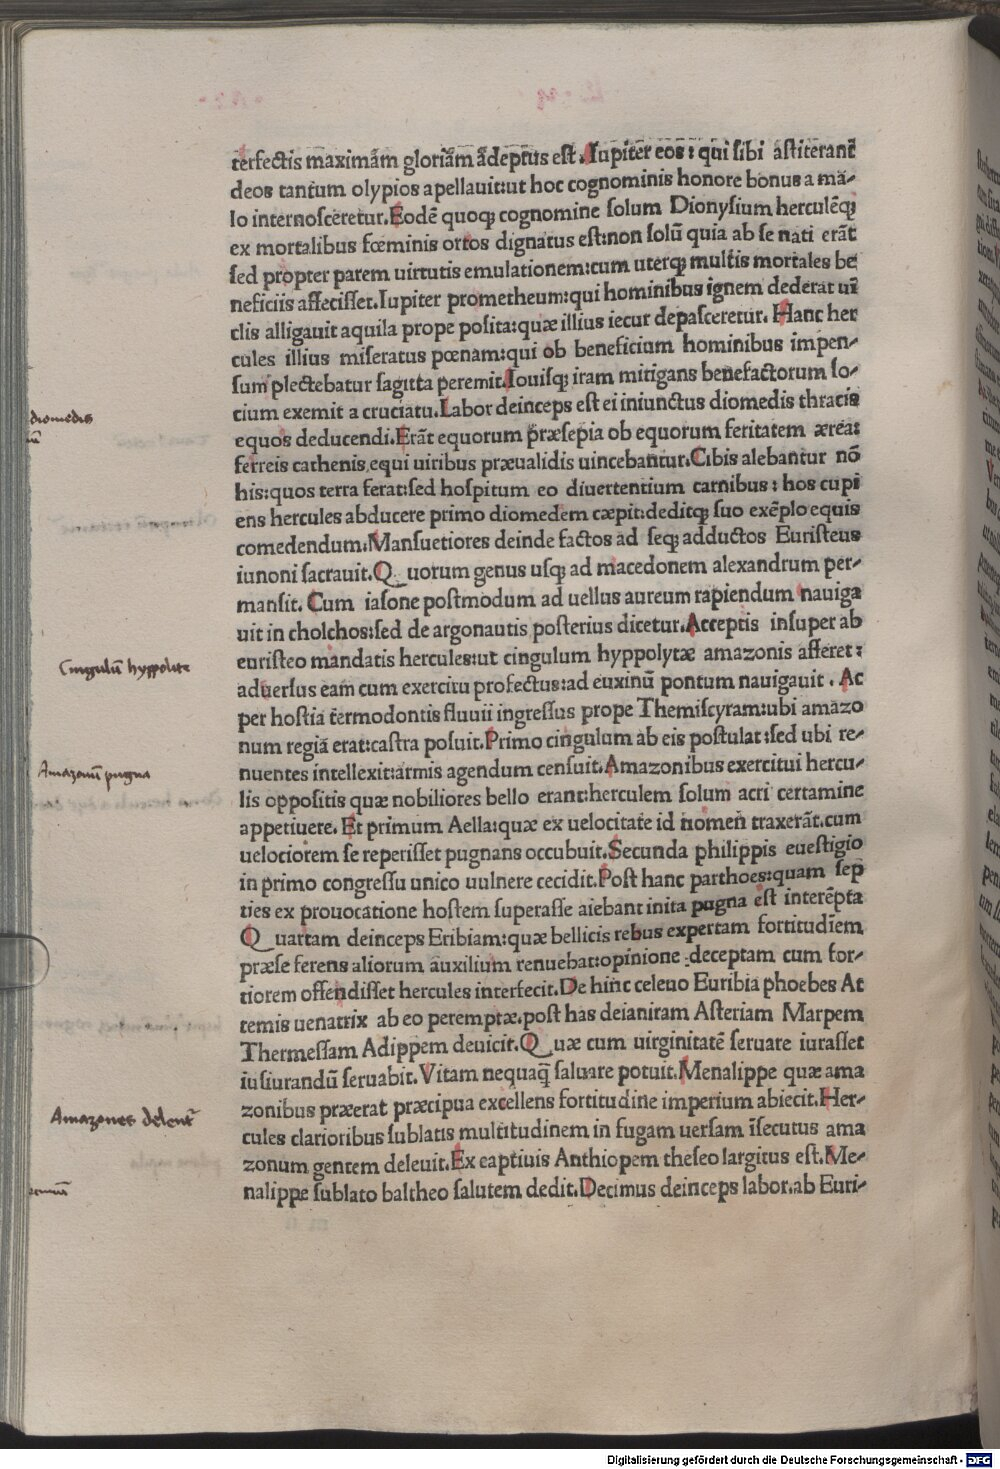 terfectis maximām gloriām ādeptus est. Iupiter eos: qui sibi astiterant
deos tantum olypios apellauit:ut hoc cognominis honore bonus a ma-
lo internosceretur. Eodē quoqꝫ cognomine solum Dionysium herculēqꝫ
ex mortalibus fœminis ortos dignatus est:non solū quia ab se nati erāt
sed propter parem uirtutis emulationem:cum uterqꝫ multis mortales be
neficiis affecisset. Iupiter prometheum:qui hominibus ignem dederat ui
clis alligauit aquila prope posita:quæ illius iecur depasceretur. Hanc her
cules illius miseratus pœnam:qui ob beneficium hominibus impen-
sum plectebatur sagitta peremit. Iouisqꝫ iram mitigans benefactorum so-
cium exemit a cruciatu. Labor deinceps est ei iniunctus diomedis thracis
equos deducendi. Erāt equorum præsepia ob equorum feritatem ærea:
ferreis cathenis equi uiribus præualidis uincebantur. Cibis alebantur nō
his:quos terra ferat:sed hospitum eo diuertentium carnibus: hos cupi
ens hercules abducere primo diomedem cæpit:deditqꝫ suo exēplo equis
comedendum. Mansuetiores deinde factos ad seqꝫ adductos Euristeus
iunoni sacrauit. Quorum genus usqꝫ ad macedonem alexandrum per-
mansit. Cum iasone postmodum ad uellus aureum rapiendum nauiga
uit in cholchos:sed de argonautis posterius dicetur. Acceptis insuper ab
euristeo mandatis hercules:ut cingulum hyppolytæ amazonis afferet:
aduersus eam cum exercitu profectus:ad euxinū pontum nauigauit. Ac
per hostia termodontis fluuii ingressus prope Themiscyram:ubi amazo
num regiā erat:castra posuit. Primo cingulum ab eis postulat:sed ubi re-
nuentes intellexit:armis agendum censuit. Amazonibus exercitui hercu-
lis oppositis quæ nobiliores bello erant:herculem solum acri certamine
appetiuere. Et primum Aella:quæ ex uelocitate id nomen traxerāt.cum
uelociorem se reperisset pugnans occubuit. Secunda philippis euestigio
in primo congressu unico uulnere cecidit. Post hanc parthoes:quam sep
ties ex prouocatione hostem superasse aiebant inita pugna est interēpta
Quartam deinceps Eribiam:quæ bellicis rebus expertam fortitudiem
præse ferens aliorum auxilium renuebat:opinione deceptam cum for-
tiorem offendisset hercules interfecit. De hinc celeuo Euribia phoebes At
temis uenatrix ab eo peremptæ.post has deianiram Asteriam Marpem
Thermessam Adippem deuicit. Quæ cum uirginitatē seruare iurasset
iusiurandū seruabit. Vitam nequaq̄ saluare potuit. Menalippe quæ ama
zonibus præerat præcipua excellens fortitudine imperium abiecit. Her-
cules clarioribus sublatis multitudinem in fugam uersam īsecutus ama
zonum gentem deleuit. Ex captiuis Anthiopem theseo largitus est. Me-
nalippe sublato baltheo salutem dedit. Decimus deinceps labor.ab Euri-
diomedis
Cingulū hyppolite
Amazonū pugna
Amazones delent̄
Digitalisierung gefördert durch die Deutsche Forschungsgemeinschaft - DFG